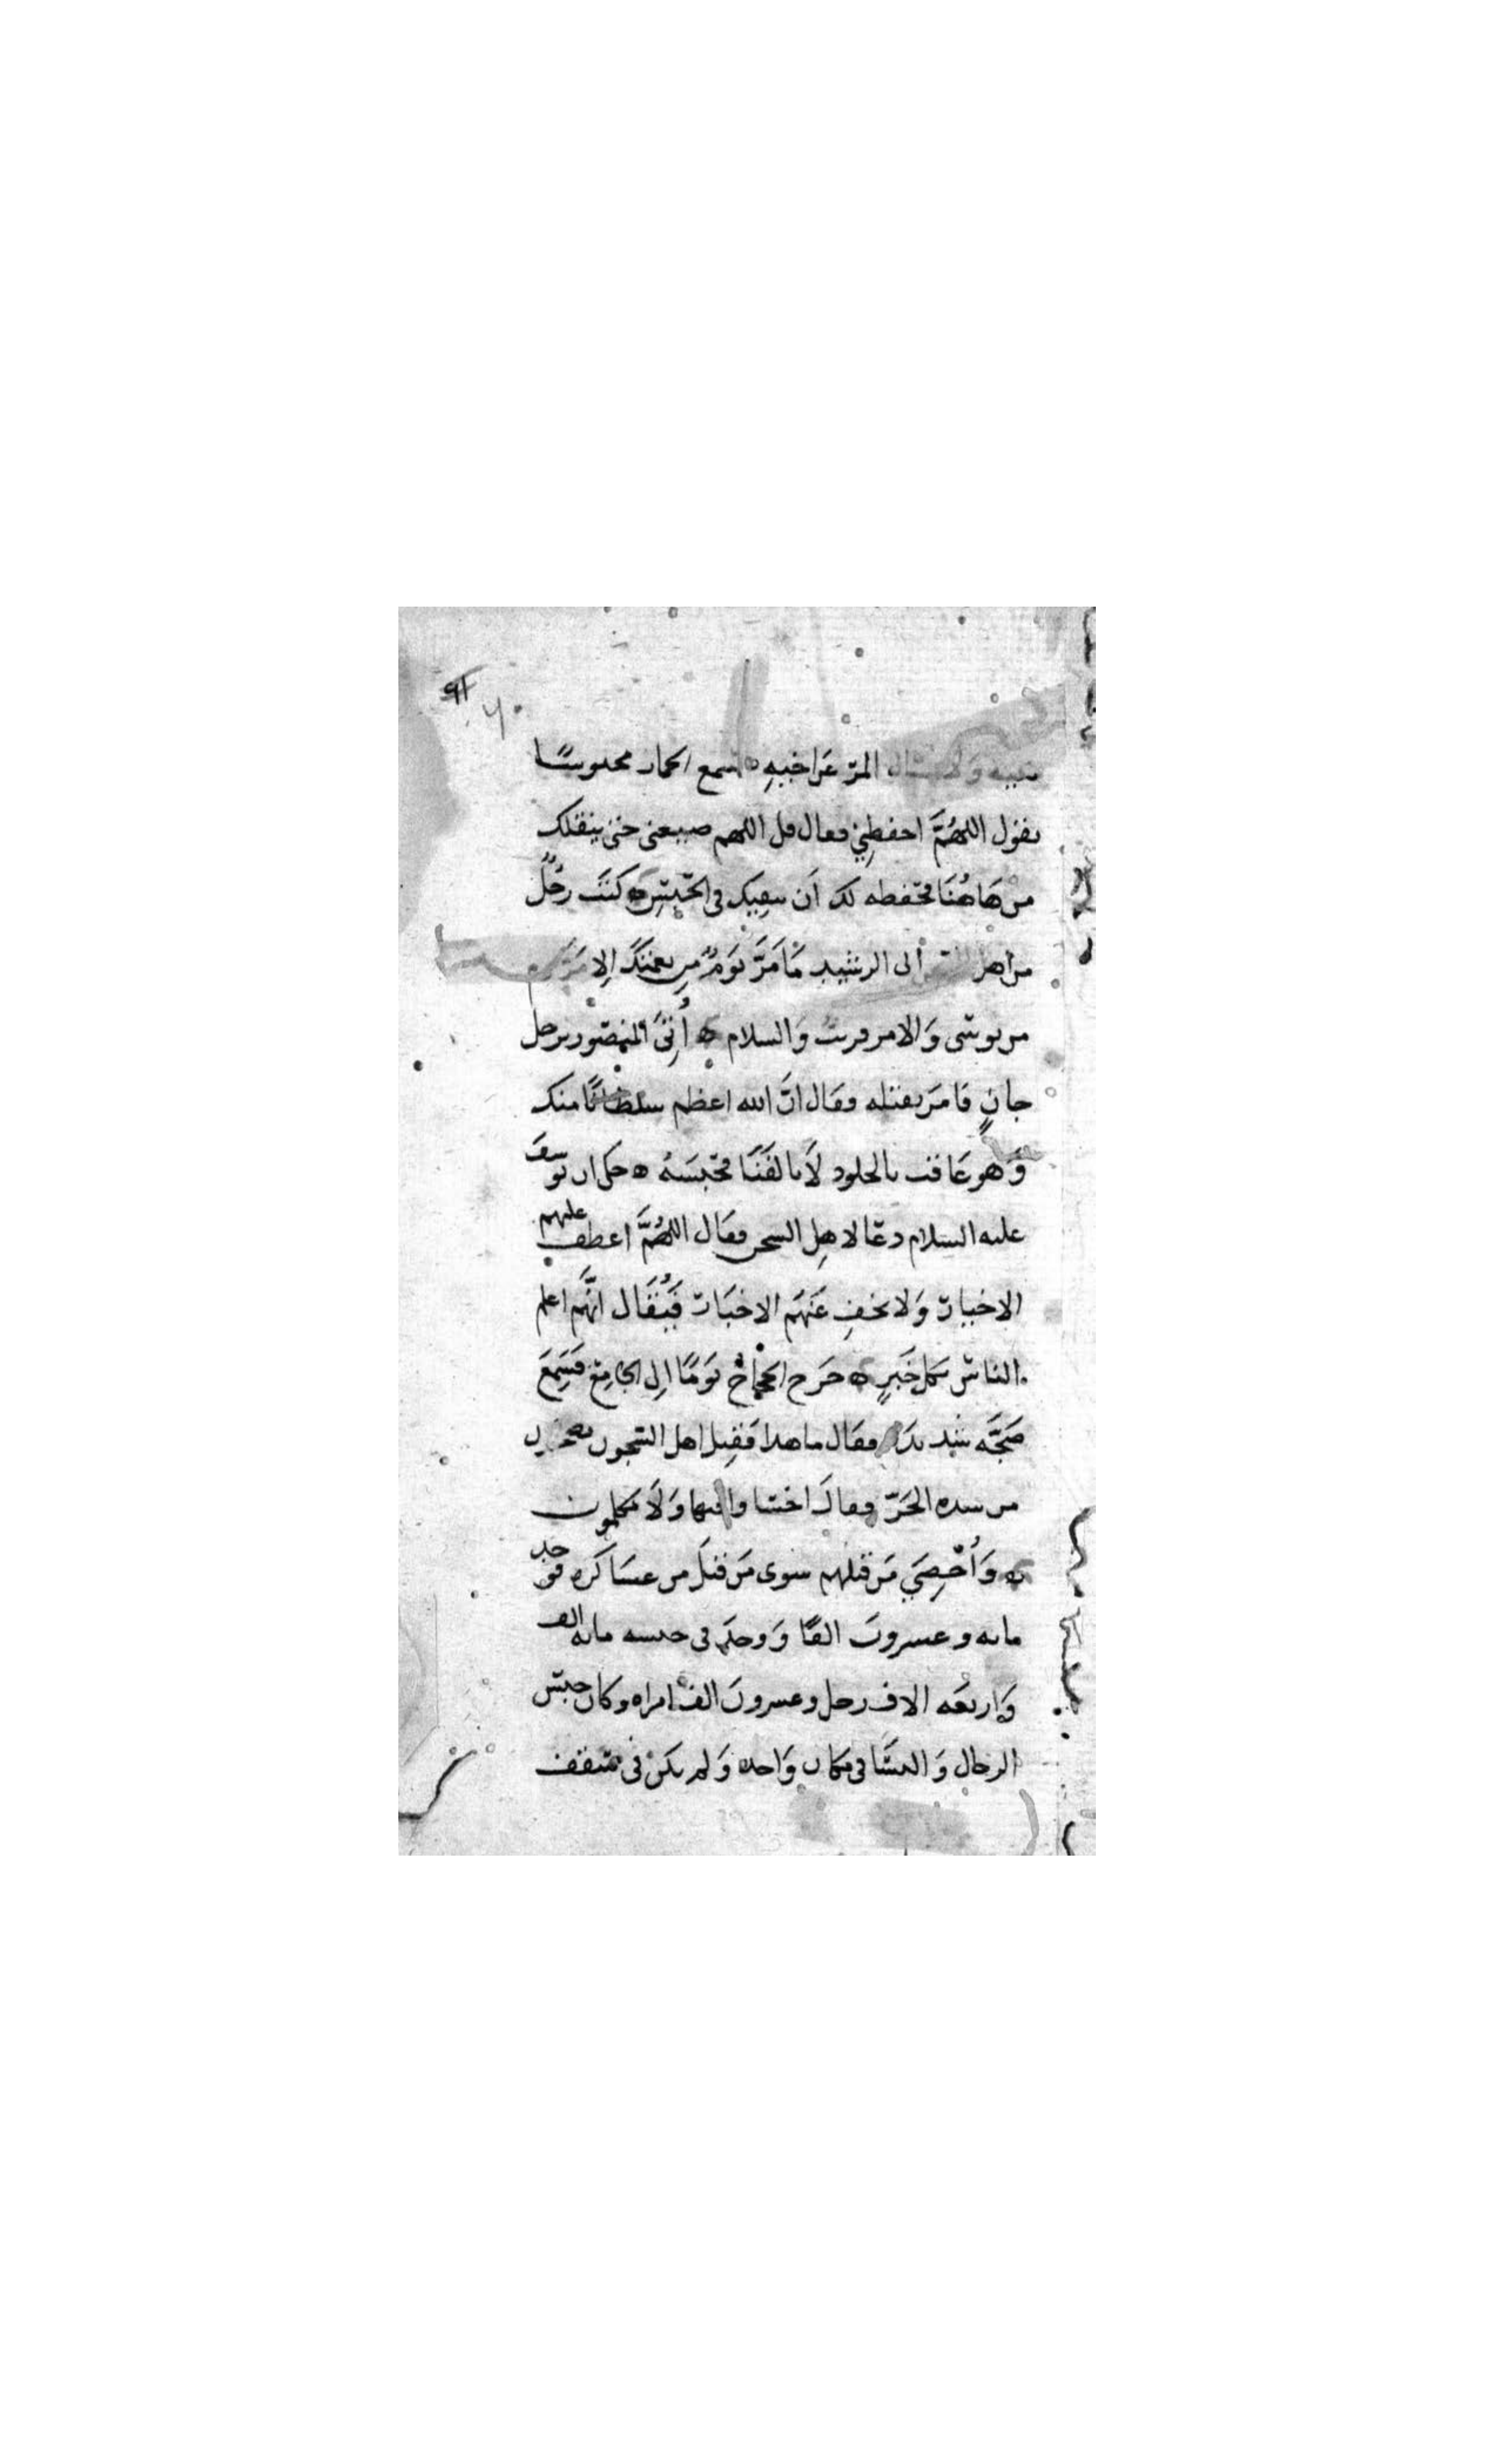 ولا المرء عن اخيه ه سمع الحمار محبوسًا
يقول اللهُمَّ احفظني فقال قل اللهم ضيعني حتى ينفلك
من هَاهُنَا فحفظه لك اَن يبقيك في الحَبْسِ ه كتَبَ رَجُلٌ
من اهل الى الرشيد مَا مَرَّ يَومٌ من نعمتِكَ اِلا مَرَّ
من بوسى وَالامر قريبٌ وَالسلام ه أُتِيَ المنصور برجل
جانٍ فامَر بقتله فقال انَّ الله اعظم سلطانًا منك
وَهو عَاقب بالخلود لَا بالفَنَا فحَبسَهُ ه حكى ان يوسف
عليه السلام دعَا لاهِل السجن فقال اللهُمَّ اعطف عليهم
الاخيار وَلا تخفِ عَنهُم الاخبَار فَيُقَال انَّهم اعلم
الناس بكل خَبَرٍ ه خرَج الحجاج يَومًا الى الجامِع فسَمِعَ
ضَجَّه شديدَه فقَال ما هذا فقِيل اهل السّجون يضجون
من شده الحَرّ فقالَ اخسَاوا فيها وَلَا تكلمون
ه وَأُحْصِيَ مَن قتلهم سوى مَن قتلَ من عسَاكره فوجد
مايه وعشرونَ الفًا وَوجدَ في حبسه مايه الف
وَاربعَه الاف رجل وعشرونَ الف امراه وكان حبسُ
الرجال وَالنسَا في مكان وَاحد وَلم يكنْ فى سقف